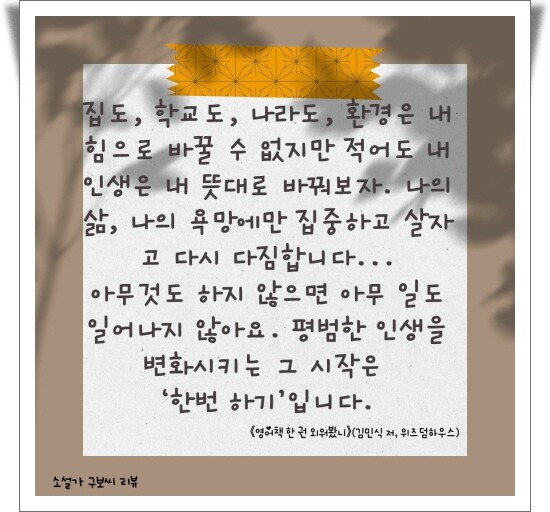 집도, 학교도, 나라도, 환경은 내
힘으로 바꿀 수 없지만 적어도 내
인생은 내 뜻대로 바꿔보자. 나의
삶, 나의 욕망에만 집중하고 살자
고 다시 다짐합니다...
아무것도 하지 않으면 아무 일도
일어나지 않아요. 평범한 인생을
변화시키는 그 시작은
‘한번 하기’입니다.
《영어책 한 권 외워봤니》(김민식 저, 위즈덤하우스)
소설가 구보씨 리뷰